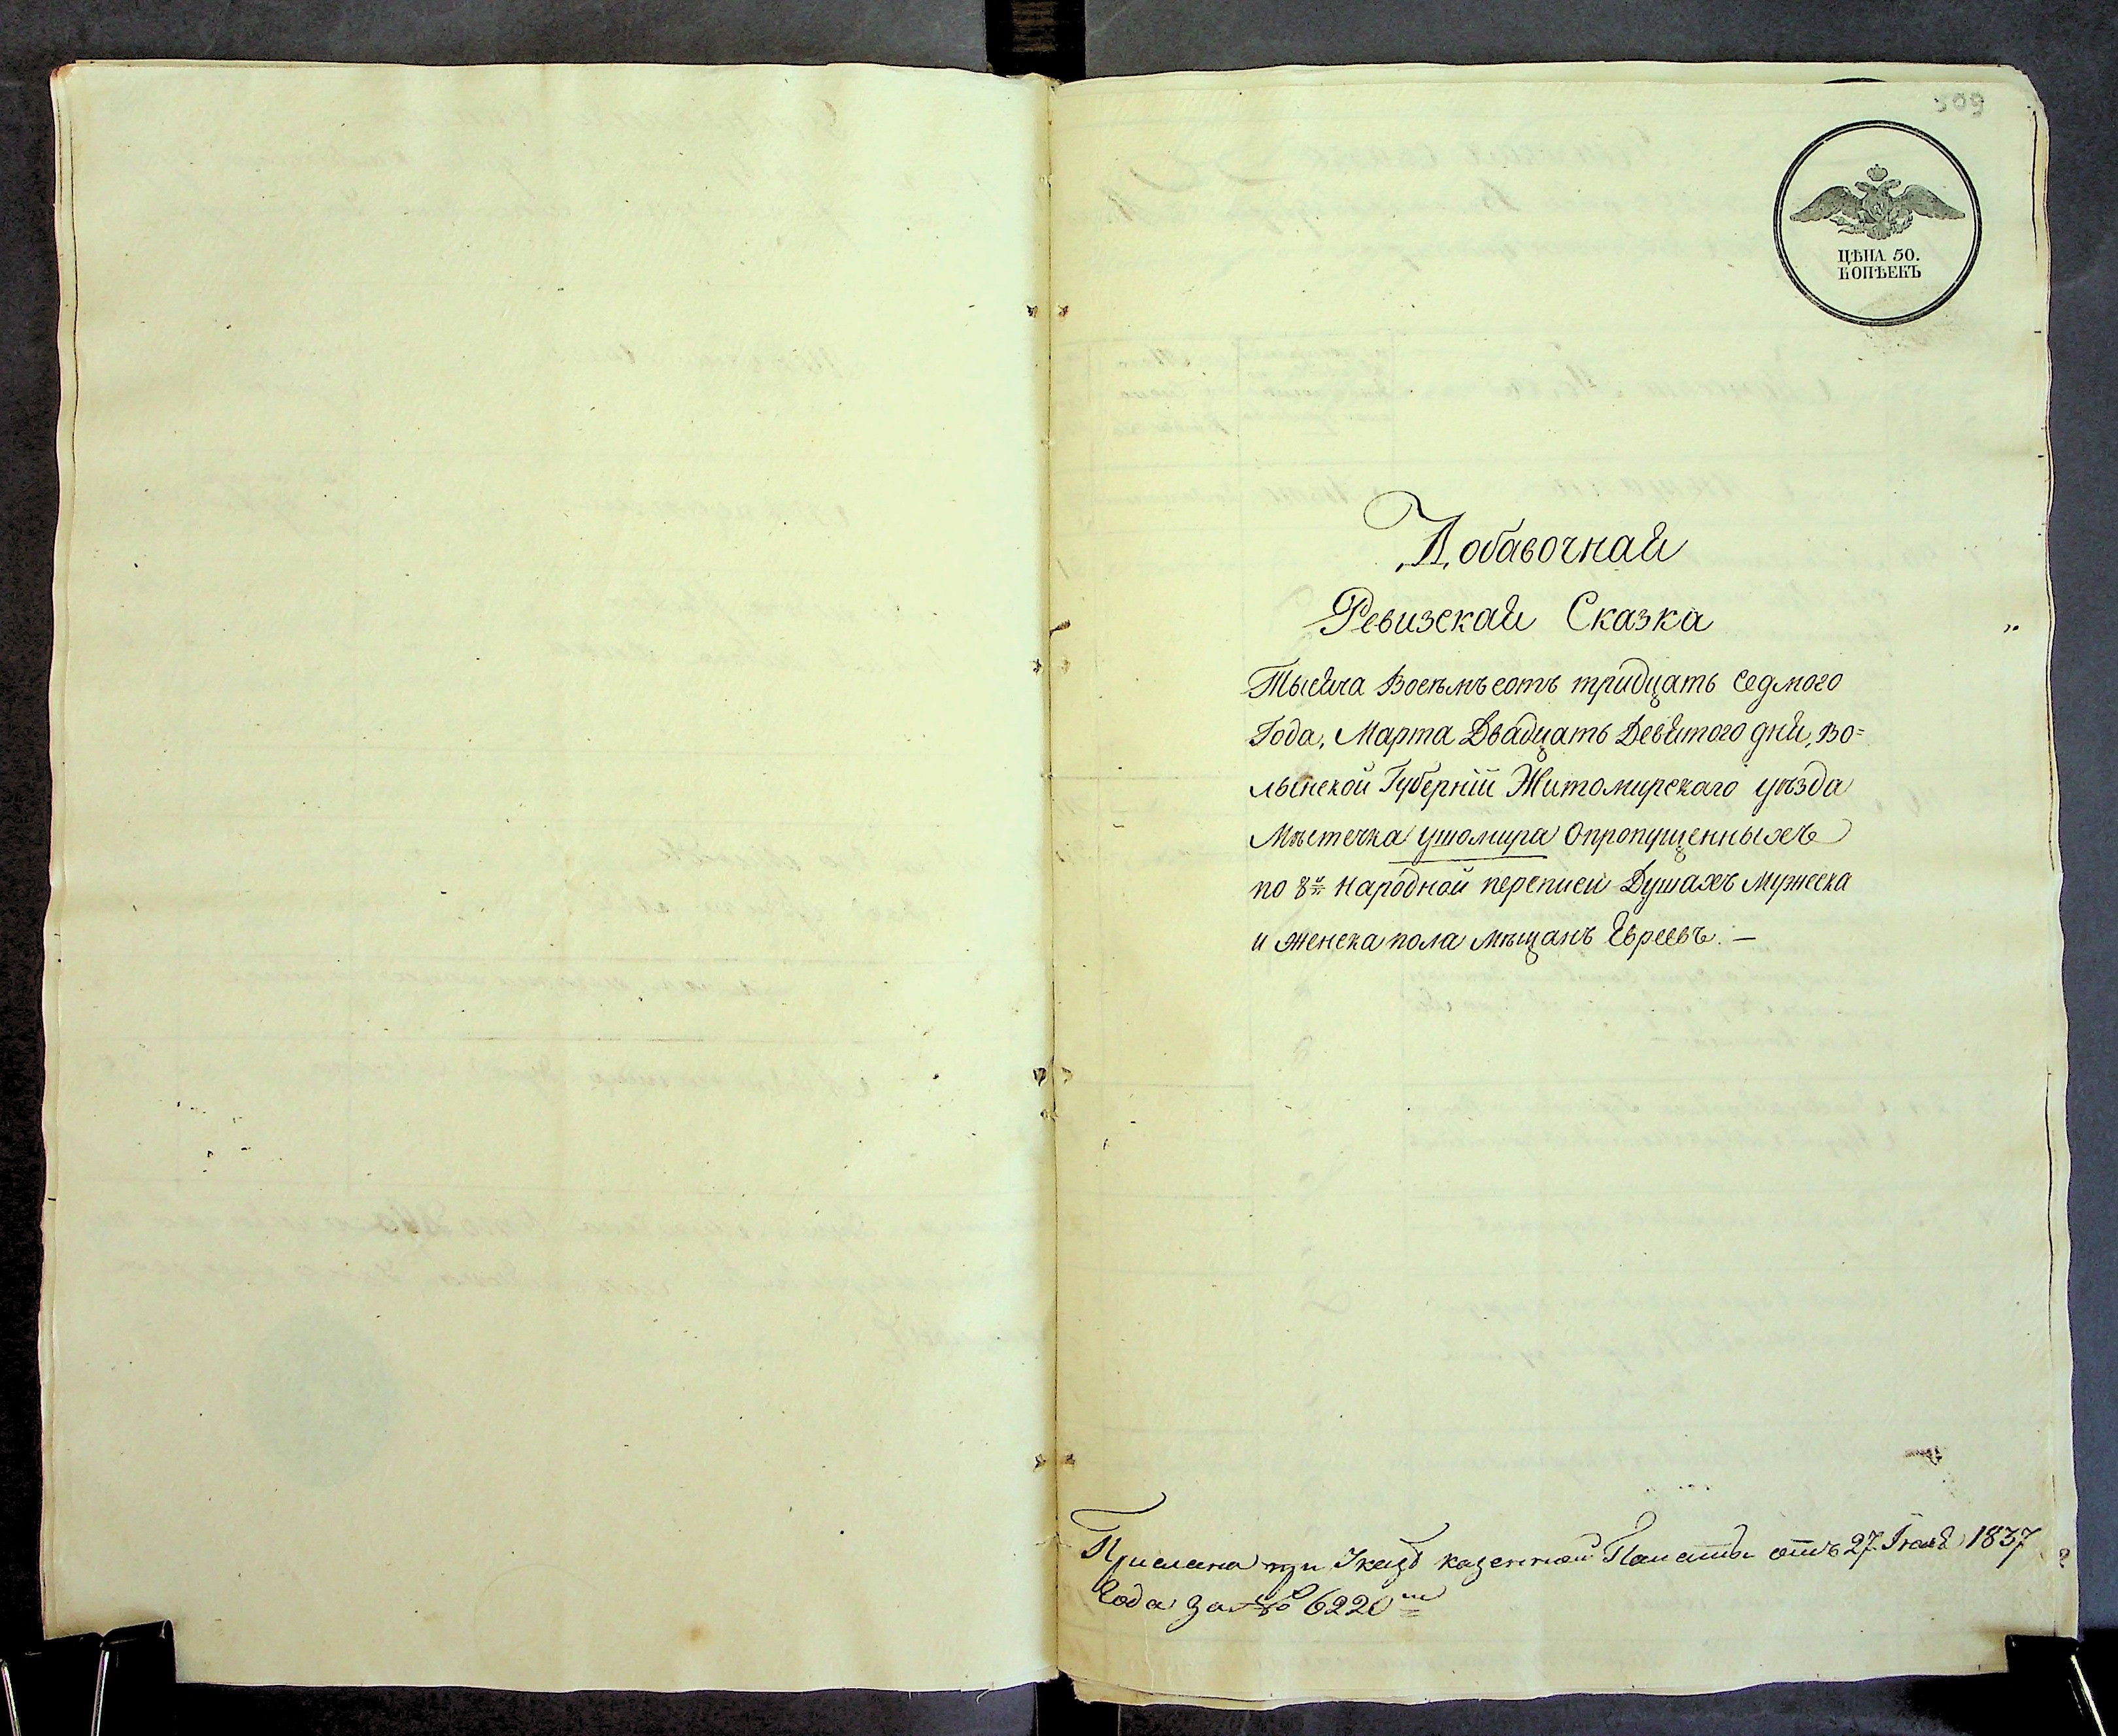 209
ЦѢНА 50.
КОПѢЕКЪ
Добавочная
Ревизская Сказка
Тысяча Восѣмъсотъ тридцать седмого
Года, Марта Двадцать Девятого дня, Во=
лынской Губерніи Житомирскаго уѣзда
Мѣстечка ушомира Опропущенныхъ
по 8й народной переписи Душахъ Мужеска
и женска пола мѣщанъ Евреевъ. —
Прислана при Указѣ казенной Палаты отъ 27. 1837
Года за № 6220м